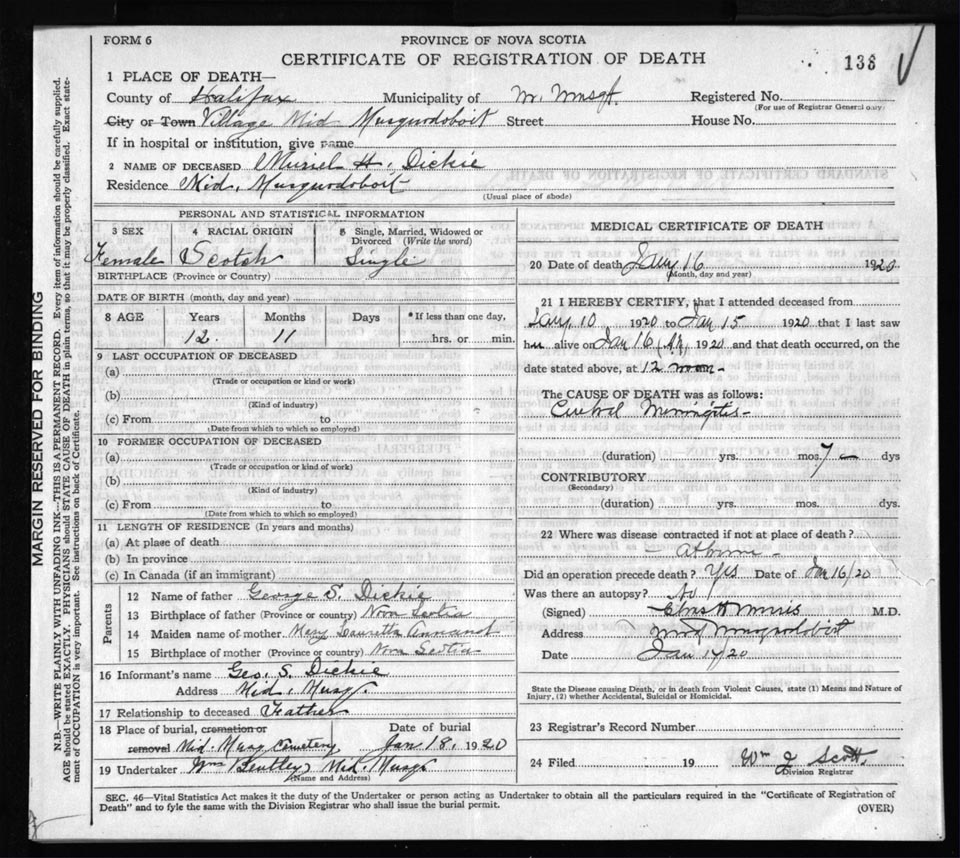 FORM 6
PROVINCE OF NOVA SCOTIA
CERTIFICATE OF REGISTRATION OF DEATH
138
1 PLACE OF DEATH—
County of Halifax Municipality of Registered No.
(For use of Registrar General only)
City or Town Village Mid Musquodoboit Street House No.
If in hospital or institution, give name
2 NAME OF DECEASED Muriel H. Dickie
Residence Mid. Musquodoboit
(Usual place of abode)
PERSONAL AND STATISTICAL INFORMATION
3 SEX 4 RACIAL ORIGIN 5 Single, Married, Widowed or Divorced (Write the word)
Female Scotch Single
BIRTHPLACE (Province or Country)
DATE OF BIRTH (month, day and year)
8 AGE Years Months Days *If less than one day,
12 11 hrs. or min.
9 LAST OCCUPATION OF DECEASED
(a)
(Trade or occupation or kind or work)
(b)
(Kind of industry)
(c) From to
(Date from which to which so employed)
10 FORMER OCCUPATION OF DECEASED
(a)
(Trade or occupation or kind or work)
(b)
(Kind of industry)
(c) From to
(Date from which to which so employed)
11 LENGTH OF RESIDENCE (In years and months)
(a) At place of death
(b) In province
(c) In Canada (if an immigrant)
Parents
12 Name of father George S. Dickie
13 Birthplace of father (Province or country) Nova Scotia
14 Maiden name of mother Mary Lauretta Annand
15 Birthplace of mother (Province or country) Nova Scotia
16 Informant's name Geo. S. Dickie
Address Mid. Musq.
17 Relationship to deceased Father
18 Place of burial, cremation or removal Mid. Musq Cemetery Date of burial Jan 18. 1920
19 Undertaker Wm Bentley Mid. Musq
(Name and Address)
MEDICAL CERTIFICATE OF DEATH
20 Date of death Jany 16 1920
(Month, day and year)
21 I HEREBY CERTIFY, that I attended deceased from
Jany 10 1920 to Jan 15 1920 that I last saw
her alive on Jan 16 1920 and that death occurred, on the
date stated above, at 12 noon
The CAUSE OF DEATH was as follows:
Cerebral Meningitis
(duration) yrs. mos. 7 dys
CONTRIBUTORY
(Secondary)
(duration) yrs. mos. dys.
22 Where was disease contracted if not at place of death?
at home
Did an operation precede death? Yes Date of Jan 16/20
Was there an autopsy? No
(Signed) M.D.
Address Mid Musquodoboit
Date Jan 17/20
State the Disease causing Death, or in death from Violent Causes, state (1) Means and Nature of
Injury, (2) whether Accidental, Suicidal or Homicidal.
23 Registrar's Record Number
24 Filed 19 Wm J Scott
Division Registrar
SEC. 46—Vital Statistics Act makes it the duty of the Undertaker or person acting as Undertaker to obtain all the particulars required in the "Certificate of Registration of
Death" and to fyle the same with the Division Registrar who shall issue the burial permit.
(OVER)
MARGIN RESERVED FOR BINDING
N.B.—WRITE PLAINLY WITH UNFADING INK—THIS IS A PERMANENT RECORD. Every item of information should be carefully supplied.
AGE should be stated EXACTLY. PHYSICIANS should STATE CAUSE OF DEATH in plain terms, so that it may be properly classified. Exact state-
ment of OCCUPATION is very important. See instructions on back of Certificate.